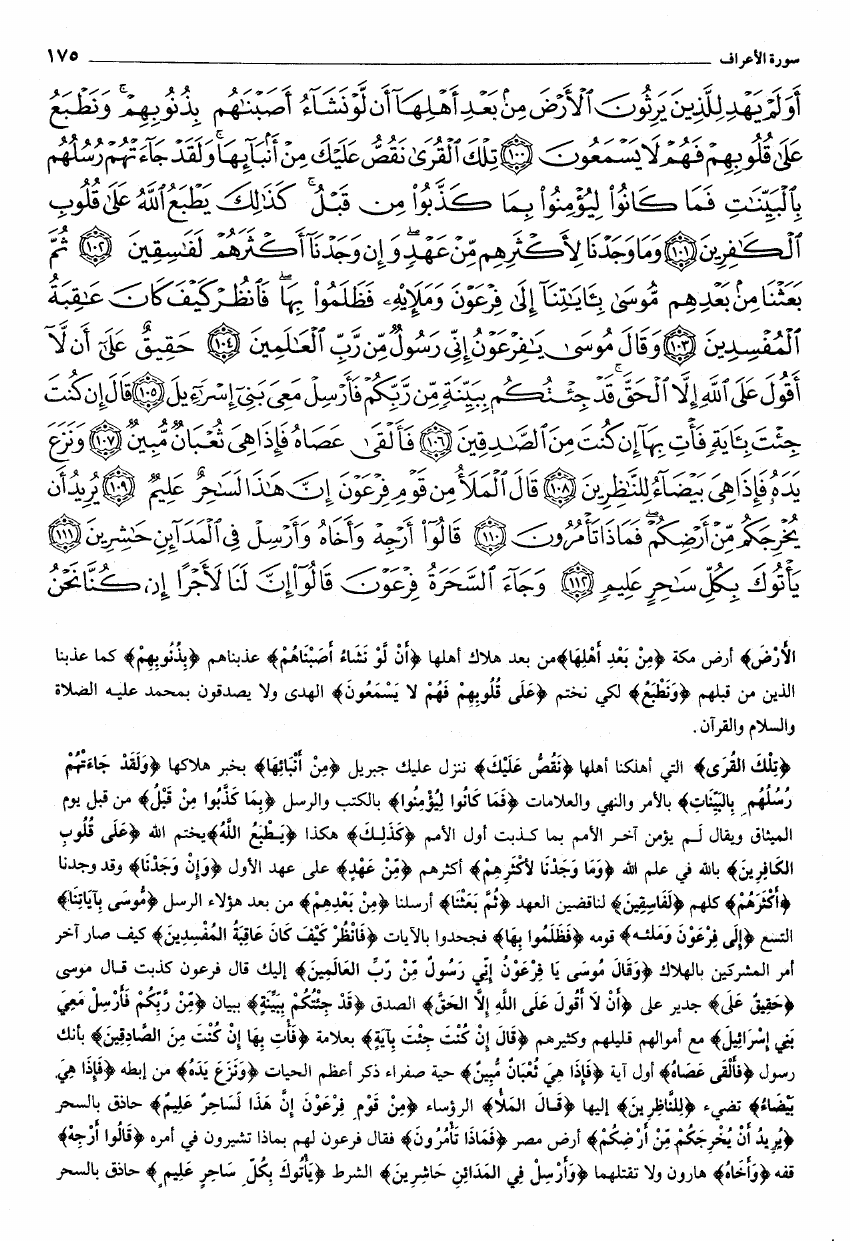 سورة الأعراف ١٧٥
أَوَلَمْ يَهْدِ لِلَّذِينَ يَرِثُونَ ٱلْأَرْضَ مِنۢ بَعْدِ أَهْلِهَآ أَن لَّوْ نَشَآءُ أَصَبْنَٰهُم بِذُنُوبِهِمْ ۚ وَنَطْبَعُ
عَلَىٰ قُلُوبِهِمْ فَهُمْ لَا يَسْمَعُونَ ﴿١٠٠﴾ تِلْكَ ٱلْقُرَىٰ نَقُصُّ عَلَيْكَ مِنْ أَنۢبَآئِهَا ۚ وَلَقَدْ جَآءَتْهُمْ رُسُلُهُم
بِٱلْبَيِّنَٰتِ فَمَا كَانُوا۟ لِيُؤْمِنُوا۟ بِمَا كَذَّبُوا۟ مِن قَبْلُ ۚ كَذَٰلِكَ يَطْبَعُ ٱللَّهُ عَلَىٰ قُلُوبِ
ٱلْكَٰفِرِينَ ﴿١٠١﴾ وَمَا وَجَدْنَا لِأَكْثَرِهِم مِّنْ عَهْدٍ ۖ وَإِن وَجَدْنَآ أَكْثَرَهُمْ لَفَٰسِقِينَ ﴿١٠٢﴾ ثُمَّ
بَعَثْنَا مِنۢ بَعْدِهِم مُّوسَىٰ بِـَٔايَٰتِنَآ إِلَىٰ فِرْعَوْنَ وَمَلَإِي۟هِۦ فَظَلَمُوا۟ بِهَا ۖ فَٱنظُرْ كَيْفَ كَانَ عَٰقِبَةُ
ٱلْمُفْسِدِينَ ﴿١٠٣﴾ وَقَالَ مُوسَىٰ يَٰفِرْعَوْنُ إِنِّى رَسُولٌ مِّن رَّبِّ ٱلْعَٰلَمِينَ ﴿١٠٤﴾ حَقِيقٌ عَلَىٰٓ أَن لَّآ
أَقُولَ عَلَى ٱللَّهِ إِلَّا ٱلْحَقَّ ۚ قَدْ جِئْتُكُم بِبَيِّنَةٍ مِّن رَّبِّكُمْ فَأَرْسِلْ مَعِىَ بَنِىٓ إِسْرَٰٓءِيلَ ﴿١٠٥﴾ قَالَ إِن كُنتَ
جِئْتَ بِـَٔايَةٍ فَأْتِ بِهَآ إِن كُنتَ مِنَ ٱلصَّٰدِقِينَ ﴿١٠٦﴾ فَأَلْقَىٰ عَصَاهُ فَإِذَا هِىَ ثُعْبَانٌ مُّبِينٌ ﴿١٠٧﴾ وَنَزَعَ
يَدَهُۥ فَإِذَا هِىَ بَيْضَآءُ لِلنَّٰظِرِينَ ﴿١٠٨﴾ قَالَ ٱلْمَلَأُ مِن قَوْمِ فِرْعَوْنَ إِنَّ هَٰذَا لَسَٰحِرٌ عَلِيمٌ ﴿١٠٩﴾ يُرِيدُ أَن
يُخْرِجَكُم مِّنْ أَرْضِكُمْ ۖ فَمَاذَا تَأْمُرُونَ ﴿١١٠﴾ قَالُوٓا۟ أَرْجِهْ وَأَخَاهُ وَأَرْسِلْ فِى ٱلْمَدَآئِنِ حَٰشِرِينَ ﴿١١١﴾
يَأْتُوكَ بِكُلِّ سَٰحِرٍ عَلِيمٍ ﴿١١٢﴾ وَجَآءَ ٱلسَّحَرَةُ فِرْعَوْنَ قَالُوٓا۟ إِنَّ لَنَا لَأَجْرًا إِن كُنَّا نَحْنُ
الأَرْضَ﴾ أرض مكة ﴿مِنْ بَعْدِ أَهْلِهَا﴾من بعد هلاك أهلها ﴿أَنْ لَوْ نَشَاءُ أَصَبْنَاهُمْ﴾ عذبناهم ﴿بِذُنُوبِهِمْ﴾ كما عذبنا
الذين من قبلهم ﴿وَنَطْبَعُ﴾ لكي نختم ﴿عَلَى قُلُوبِهِمْ فَهُمْ لا يَسْمَعُونَ﴾ الهدى ولا يصدقون بمحمد عليه الصلاة
والسلام والقرآن.
﴿تِلْكَ القُرَى﴾ التي أهلكنا أهلها ﴿نَقُصُّ عَلَيْكَ﴾ ننزل عليك جبريل ﴿مِنْ أَنْبَائِهَا﴾ بخبر هلاكها ﴿وَلَقَدْ جَاءَتْهُمْ
رُسُلُهُمِ بِالبَيِّنَاتِ﴾ بالأمر والنهي والعلامات ﴿فَمَا كَانُوا لِيُؤْمِنُوا﴾ بالكتب والرسل ﴿بِمَا كَذَّبُوا مِنْ قَبْلُ﴾ من قبل يوم
الميثاق ويقال لـم يؤمن آخر الأمم بما كذبت أول الأمم ﴿كَذَلِكَ﴾ هكذا ﴿يَطْبَعُ اللَّهُ﴾يختم الله ﴿عَلَى قُلُوبِ
الكَافِرِينَ﴾ بالله في علم الله ﴿وَمَا وَجَدْنَا لأَكْثَرِهِمْ﴾ أكثرهم ﴿مِّنْ عَهْدٍ﴾ على عهد الأول ﴿وَإِنْ وَجَدْنَا﴾ وقد وجدنا
﴿أَكْثَرَهُمْ﴾ كلهم ﴿لَفَاسِقِينَ﴾ لناقضين العهد ﴿ثُمَّ بَعَثْنَا﴾ أرسلنا ﴿مِنْ بَعْدِهِمْ﴾ من بعد هؤلاء الرسل ﴿مُّوسَى بِآيَاتِنَا﴾
التسع ﴿إِلَى فِرْعَوْنَ وَمَلَئِهِ﴾ قومه ﴿فَظَلَمُوا بِهَا﴾ فجحدوا بالآيات ﴿فَانْظُرْ كَيْفَ كَانَ عَاقِبَةُ المُفْسِدِينَ﴾ كيف صار آخر
أمر المشركين بالهلاك ﴿وَقَالَ مُوسَى يَا فِرْعَوْنُ إِنِّي رَسُولٌ مِّنْ رَّبِّ العَالَمِينَ﴾ إليك قال فرعون كذبت قال موسى
﴿حَقِيقٌ عَلَى﴾ جدير على ﴿أَنْ لاَ أَقُولَ عَلَى اللَّهِ إِلاَّ الحَقَّ﴾ الصدق ﴿قَدْ جِئْتُكُمْ بِبَيِّنَةٍ﴾ ببيان ﴿مِّنْ رَّبِّكُمْ فَأَرْسِلْ مَعِيَ
بَنِي إِسْرَائِيلَ﴾ مع أموالهم قليلهم وكثيرهم ﴿قَالَ إِنْ كُنْتَ جِئْتَ بِآيَةٍ﴾ بعلامة ﴿فَأْتِ بِهَا إِنْ كُنْتَ مِنَ الصَّادِقِينَ﴾ بأنك
رسول ﴿فَأَلْقَى عَصَاهُ﴾ أول آية ﴿فَإِذَا هِيَ ثُعْبَانٌ مُّبِينٌ﴾ حية صفراء ذكر أعظم الحيات ﴿وَنَزَعَ يَدَهُ﴾ من إبطه ﴿فَإِذَا هِيَ
بَيْضَاءُ﴾ تضيء ﴿لِلنَّاظِرِينَ﴾ إليها ﴿قَالَ المَلأُ﴾ الرؤساء ﴿مِنْ قَوْمِ فِرْعَوْنَ إِنَّ هَذَا لَسَاحِرٌ عَلِيمٌ﴾ حاذق بالسحر
﴿يُرِيدُ أَنْ يُخْرِجَكُمْ مِّنْ أَرْضِكُمْ﴾ أرض مصر ﴿فَمَاذَا تَأْمُرُونَ﴾ فقال فرعون لهم بماذا تشيرون في أمره ﴿قَالُوا أَرْجِهْ﴾
قفه ﴿وَأَخَاهُ﴾ هارون ولا تقتلهما ﴿وَأَرْسِلْ فِي المَدَائِنِ حَاشِرِينَ﴾ الشرط ﴿يَأْتُوكَ بِكُلِّ سَاحِرٍ عَلِيمٍ﴾ حاذق بالسحر